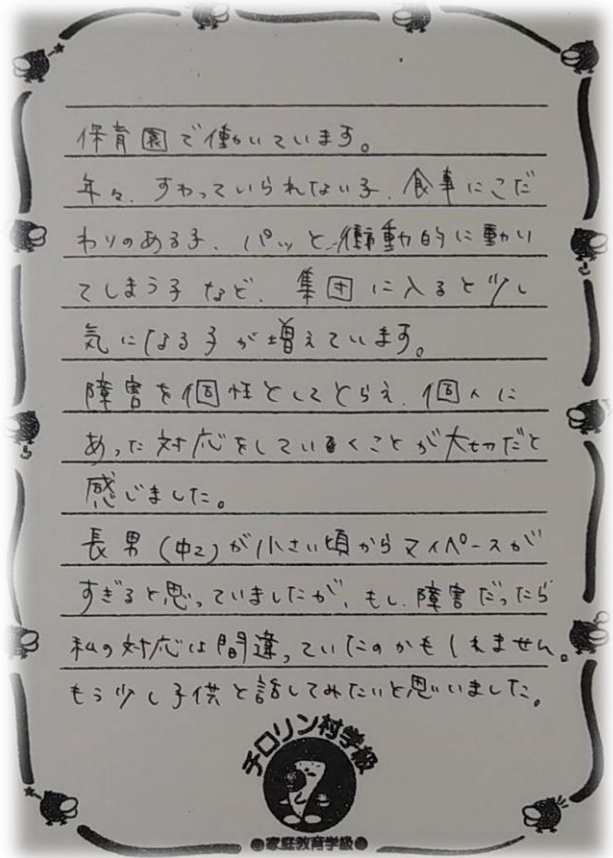 保育園で働いています。
年々、すわっていられない子、食事にこだ
わりのある子、パッと衝動的に動い
てしまう子など、集団に入ると少し
気になる子が増えています。
障害を個性としてとらえ、個人に
あった対応をしていくことが大切だと
感じました。
長男(中2)が小さい頃からマイペースが
すぎると思っていましたが、もし、障害だったら
私の対応は間違っていたのかもしれません。
もう少し子供と話してみたいと思いました。
チロリン村学級
●家庭教育学級●